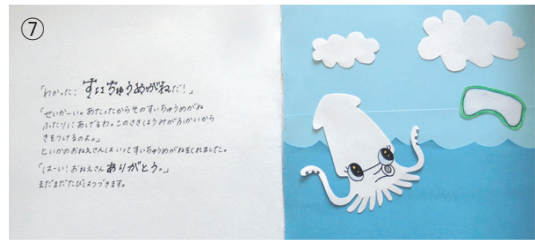 ⑦
「わかった！すいちゅうめがねだ！」
「せいかーい。あたったからそのすいちゅうめがね
ふたりにあげるわ。このさきしおみずがふかいから
きをつけるのよ。」
といかのおねえさんはいってすいちゅうめがねをくれました。
「はーい！おねえさんありがとう。」
まだまだたびはつづきます。